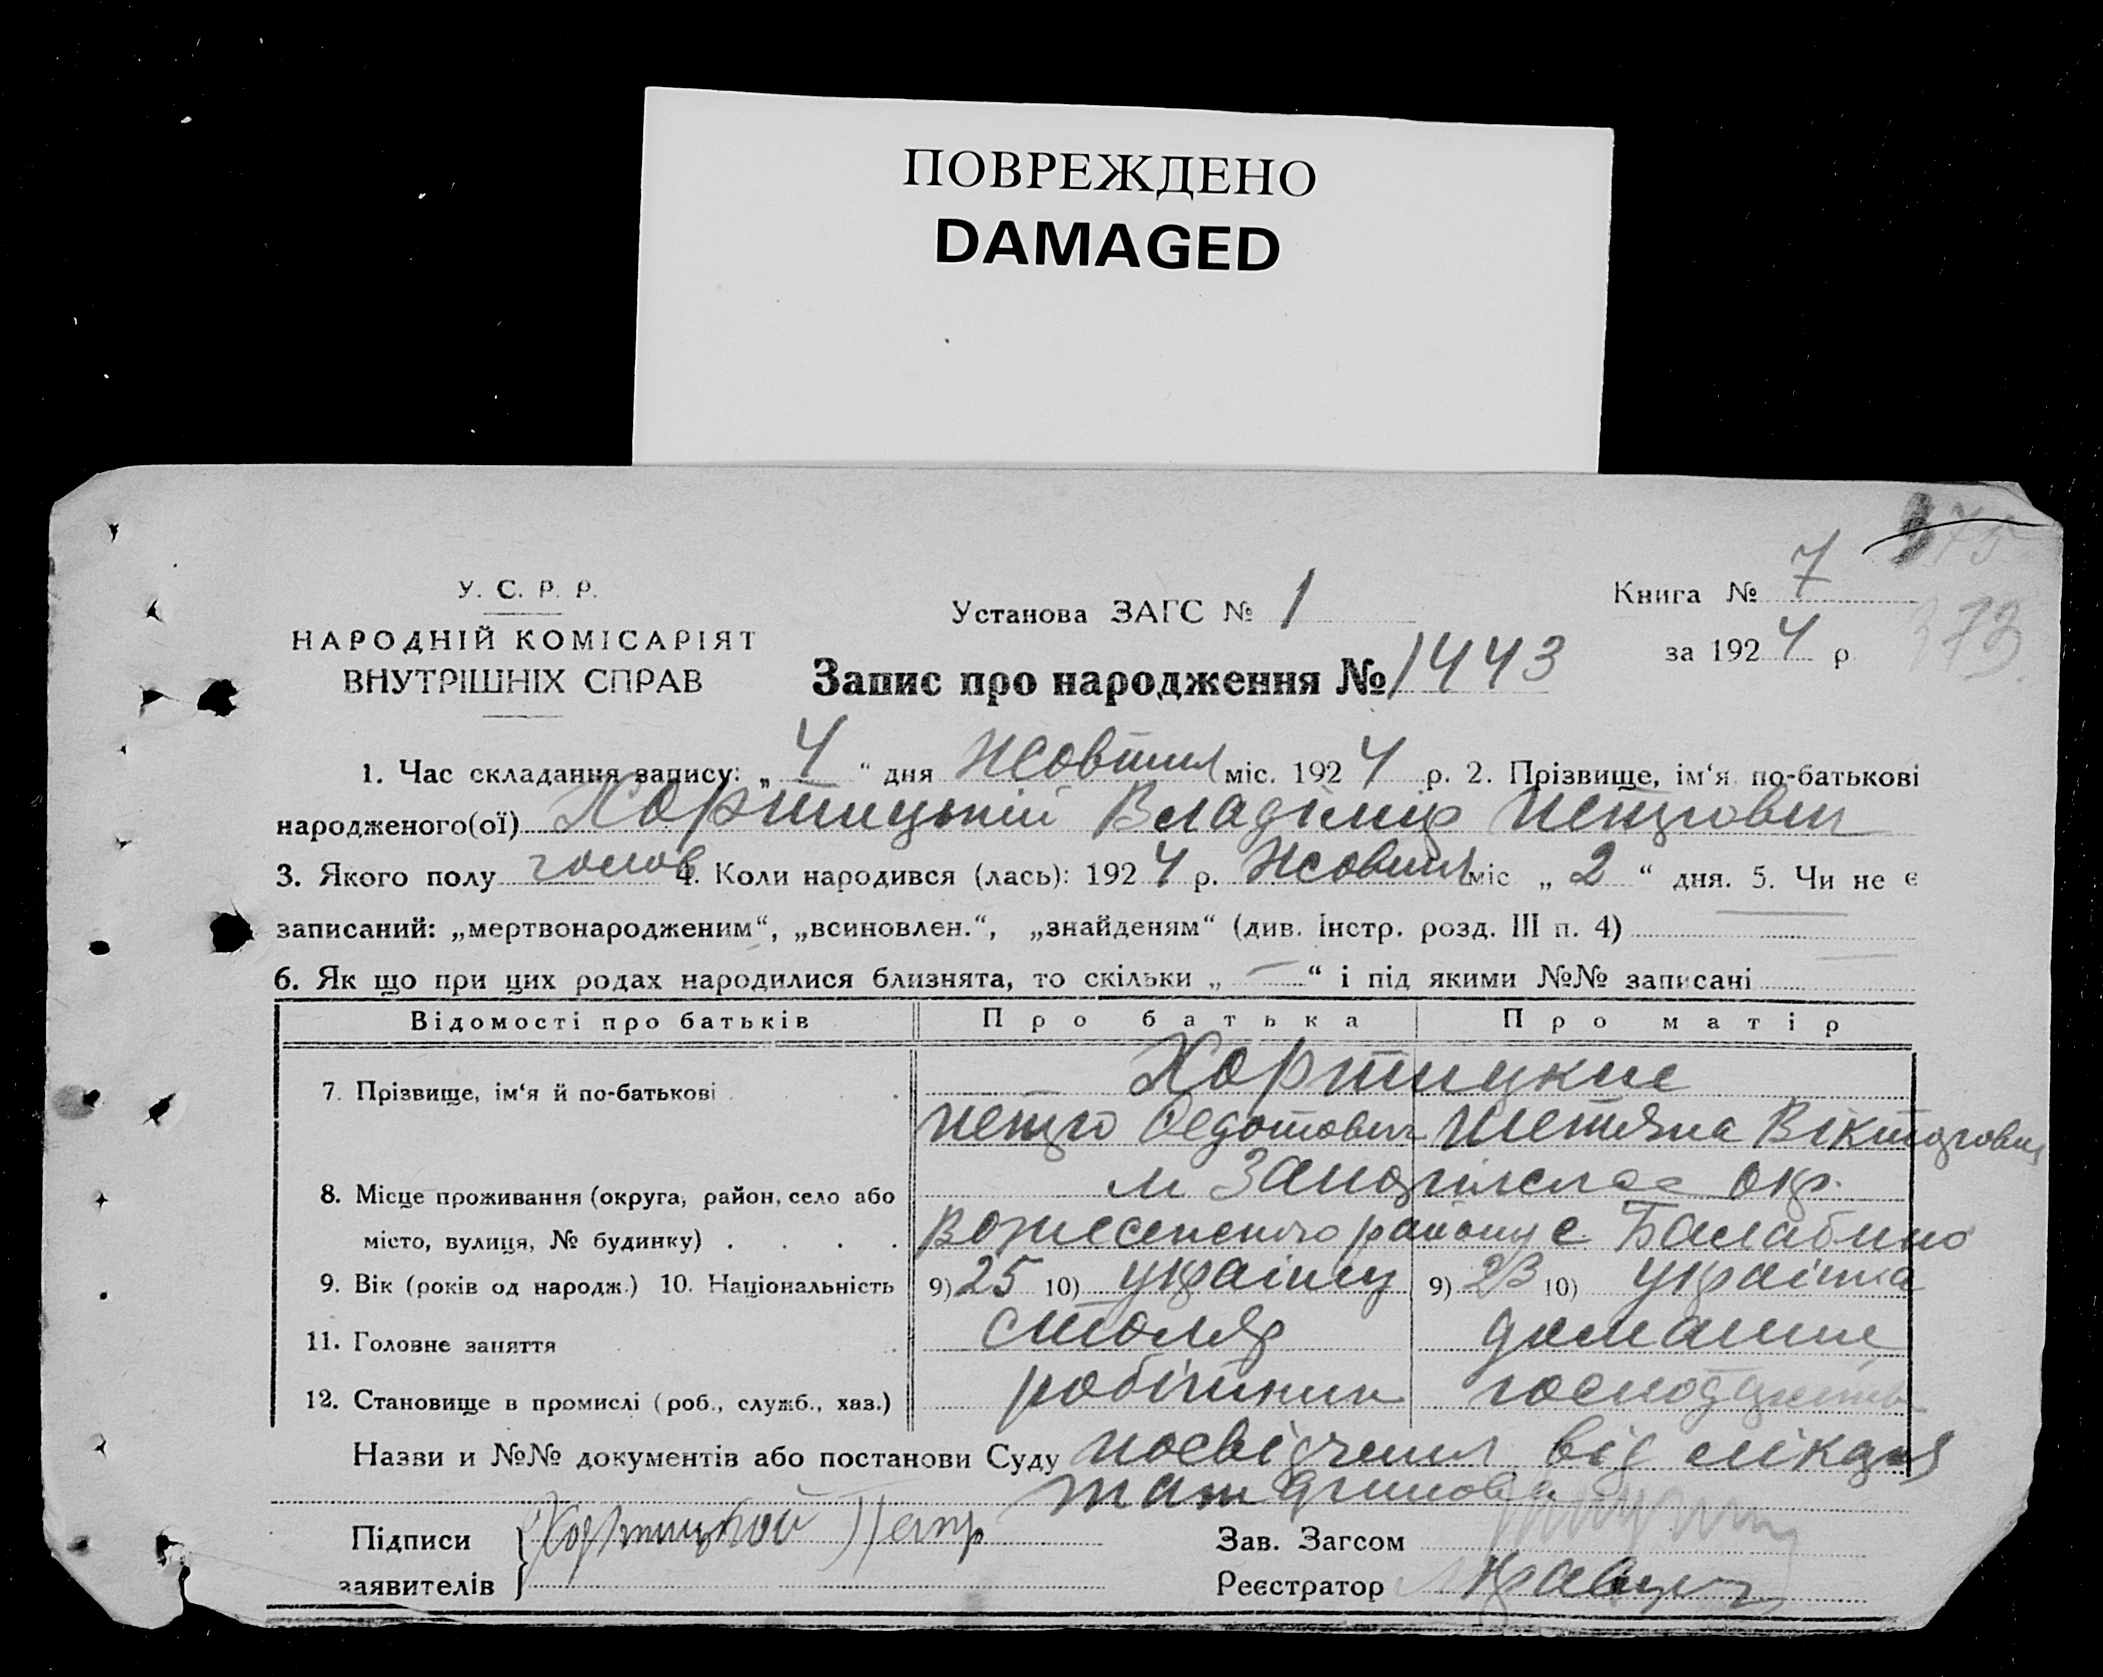 ПОВРЕЖДЕНО
DAMAGED
У. С. Р. Р.
НАРОДНІЙ КОМІСАРІЯТ
ВНУТРІШНІХ СПРАВ
Установа ЗАГС № 1
Книга № 7
за 1924 р
373
Запис про народження № 1443
1. Час складання запису: „ 4 “ дня Жовтня міс. 1924 р. 2. Прізвище, ім‘я по-батькові
народженого(ої) Хортицький Владімір Петрович
3. Якого полу чолов 4. Коли народився (лась): 1924 р. Жовтня міс „ 2 “ дня. 5. Чи не є
записаний: „мертвонародженим“, „всиновлен.“, „знайденям“ (див. Інстр. розд. III п. 4)
6. Як що при цих родах народилися близнята, то скільки „ — “ і під якими №№ записані
Відомості про батьків Про батька Про матір
7. Прізвище, ім‘я й по-батькові Хортицкие
Петро Федотович Тетяна Вікторовна
8. Місце проживання (округа, район, село або м Запоріжжя окр.
місто, вулиця, № будинку) . . . . района с Балабино
9. Вік (років од народж.) 10. Національність 9) 25 10) українец 9) 23 10) українка
11. Головне заняття столяр домашне
12. Становище в промислі (роб., служб., хаз.) робітник господарство
Назви и №№ документів або постанови Суду посвідчення від лікаря
Підписи Хортицькой Петр Зав. Загсом
заявителів Реєстратор Кравец